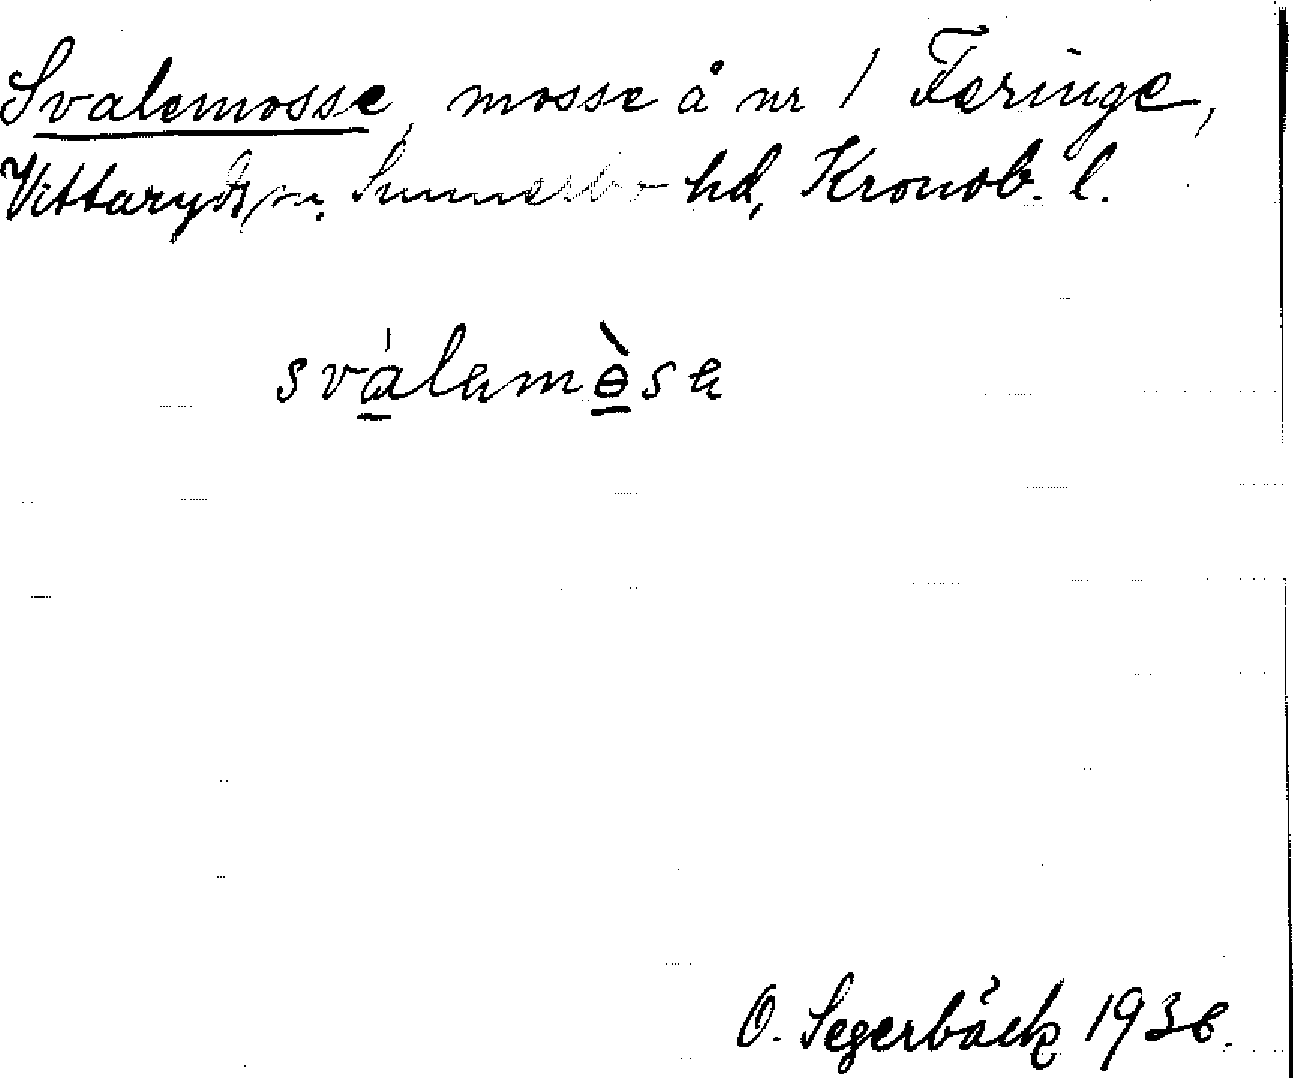 Svalemosse, mosse å nr 1 Feringe,
Vittaryds sn. Sunnerbo hd, Kronob. l.
svalamosa
O. Segerbäck 1936.